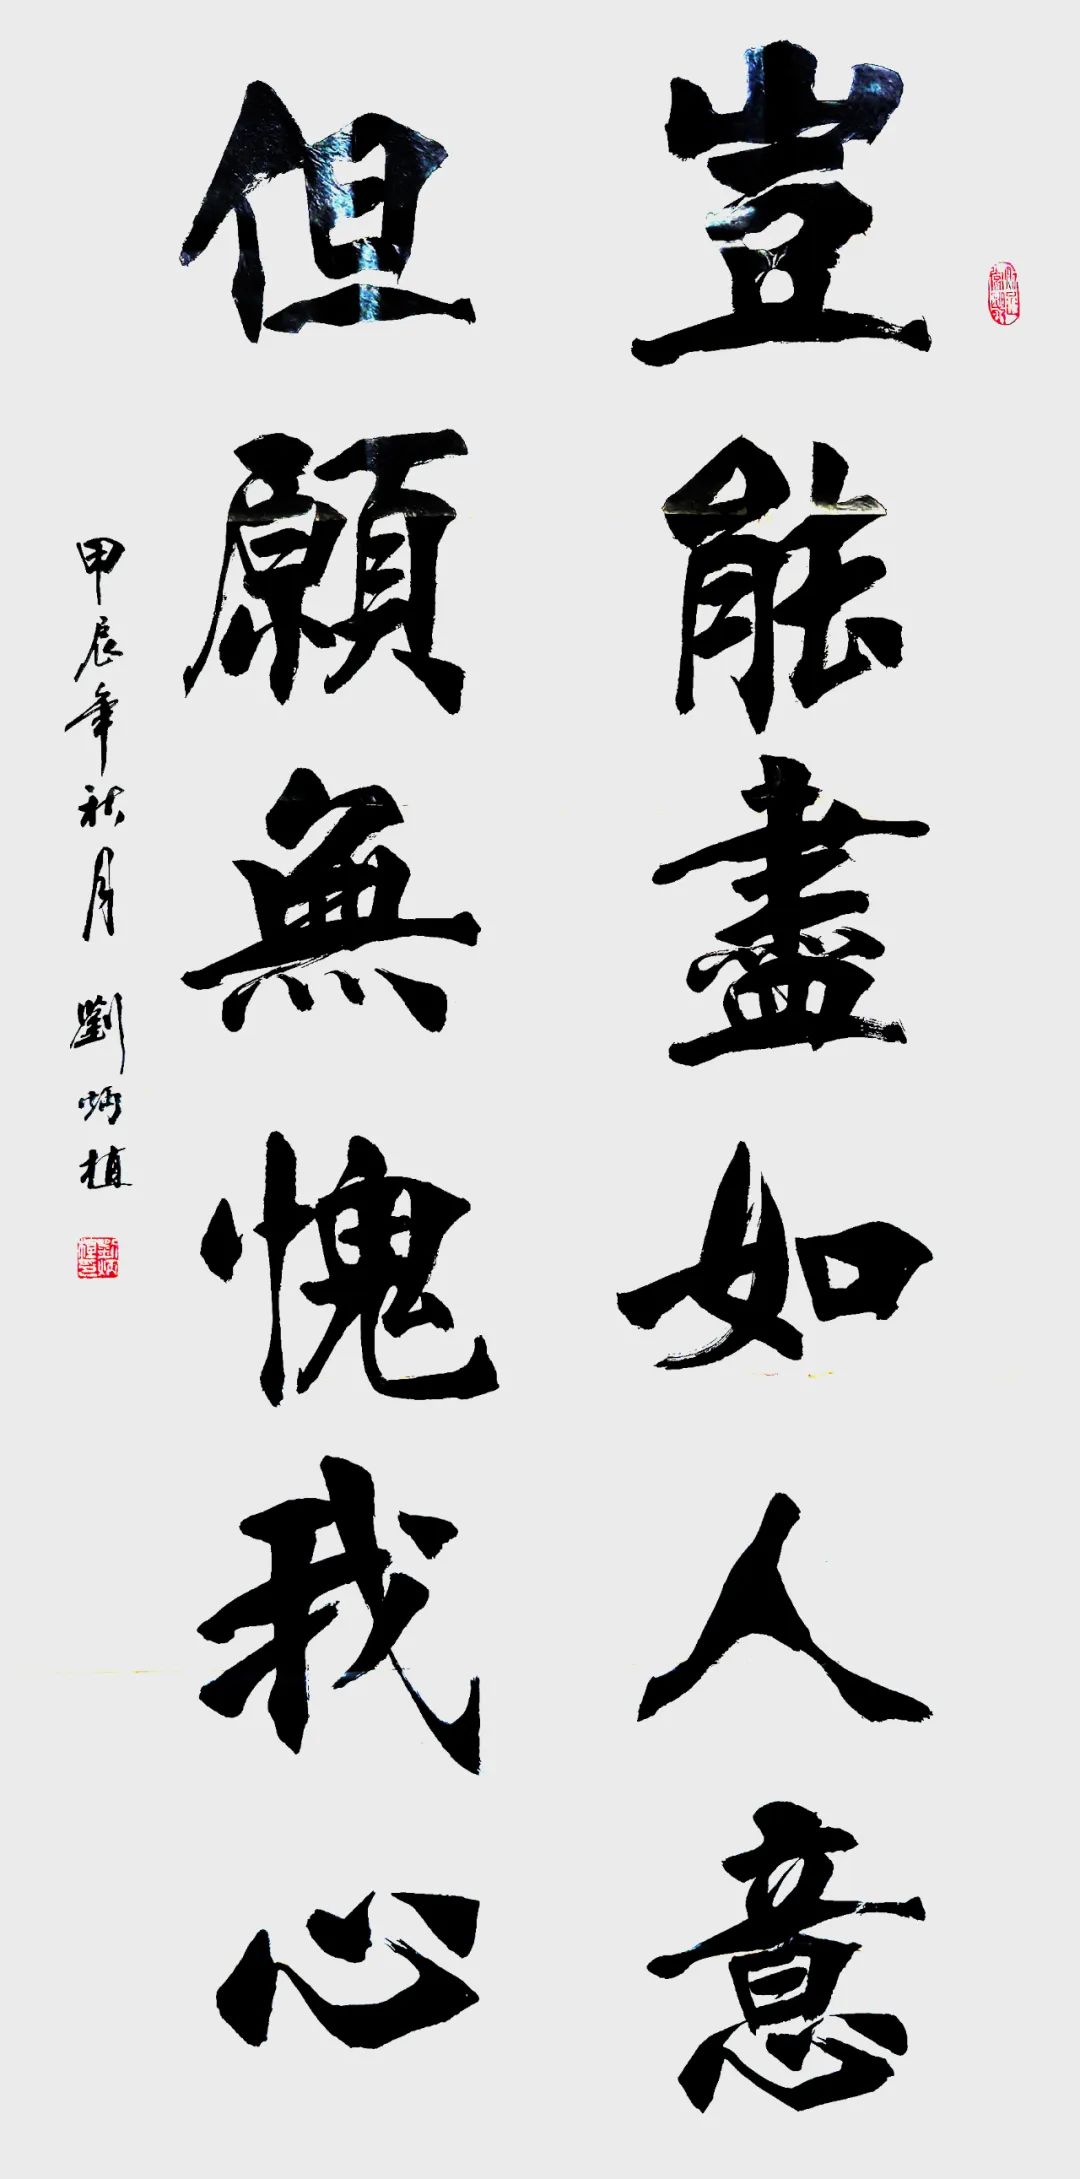 豈能盡如人意
但願無愧我心
甲辰年秋月 劉炳植